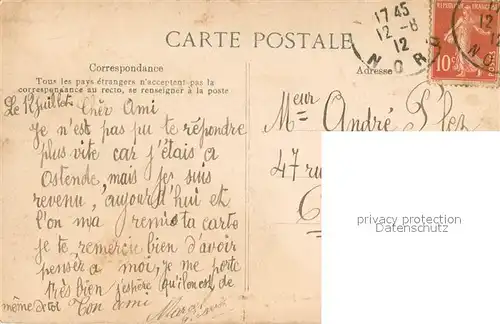 CARTE POSTALE
Correspondance
Tous les pays étrangers n'acceptent pas la
correspondance au recto, se renseigner à la poste
Adresse
17 45
12 - 8
12
NORD
REPUBLIQUE FRANÇAISE
10c
Le 12 juillet Chèr Ami
Je n'est pas pu te répondre
plus vite car j'étais a
Ostende, mais je suis
revenu, aujourd'hui et
l'on m'a remis ta carte
je te remercie bien d'avoir
pensér a moi, je me porte
très bien j'espère qu'il en est de
même de toi Ton ami
Marcel
Meur
André
47 ru
privacy protection
Datenschutz